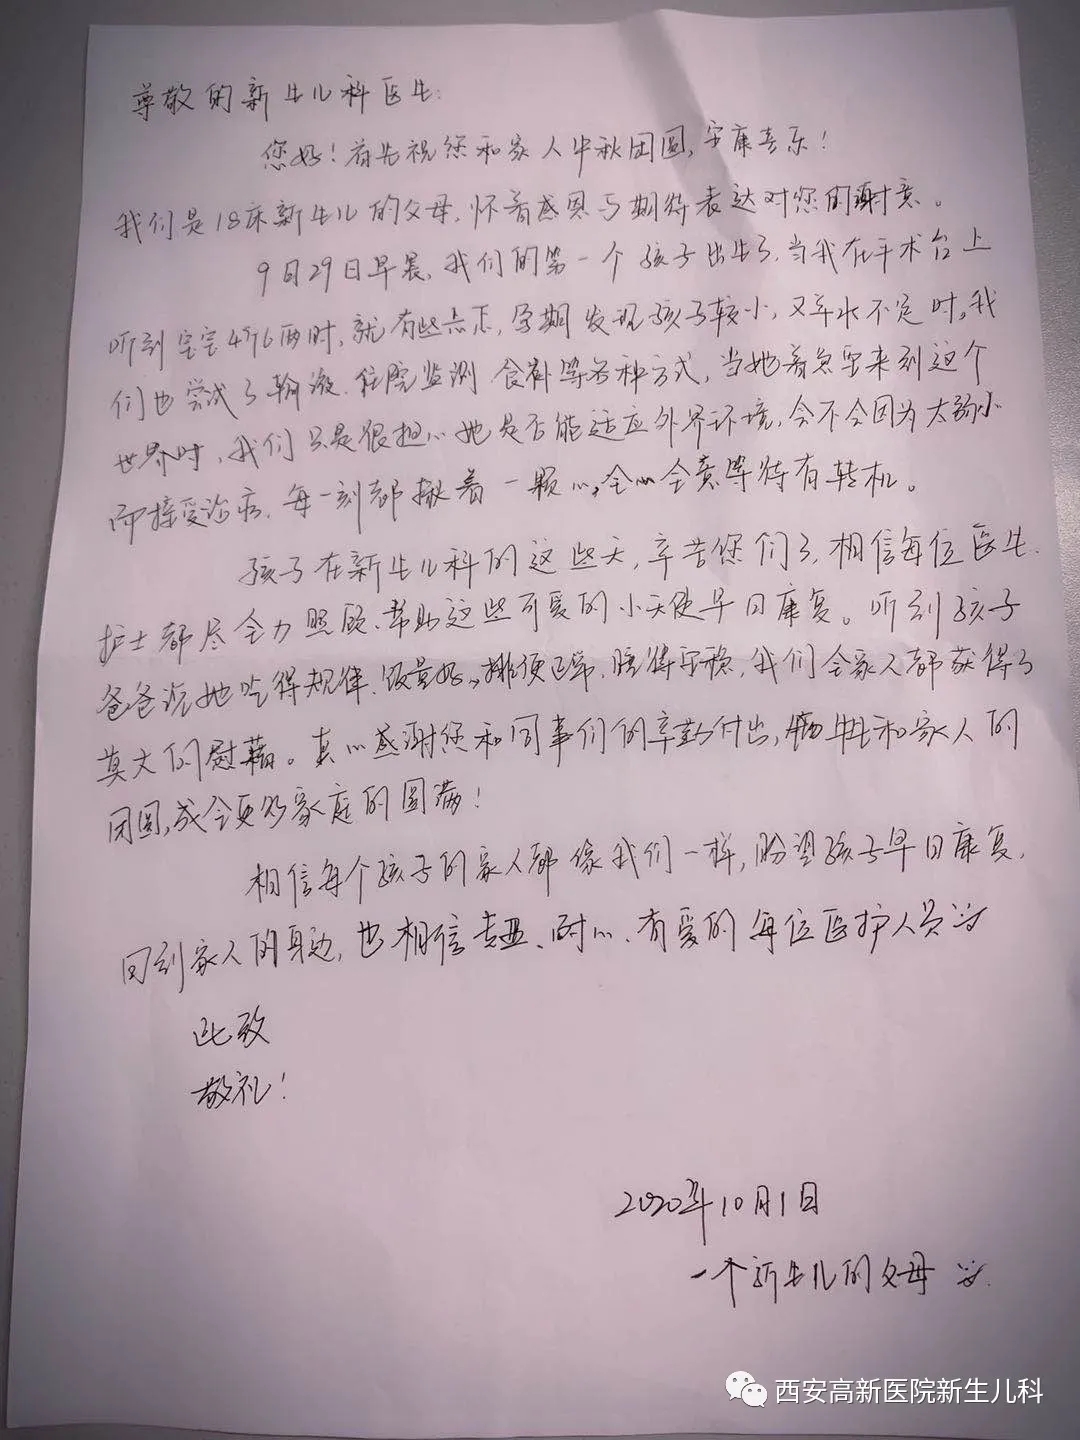 尊敬的新生儿科医生:
您好!首先祝您和家人中秋团圆,安康喜乐!
我们是18床新生儿的父母,怀着感恩与期待表达对您的谢意。
9月29日早晨,我们的第一个孩子出生了,当我在手术台上
听到宝宝4斤6两时,就有些忐忑,孕期发现孩子较小,又羊水不足时,我
们也尝试了输液、住院监测、食补等各种方式,当她着急要来到这个
世界时,我们只是很担心她是否能适应外界环境,会不会因为太弱小
而接受治疗,每一刻都揪着一颗心,全心全意等待有转机。
孩子在新生儿科的这些天,辛苦您们了,相信每位医生、
护士都尽全力照顾、帮助这些可爱的小天使早日康复。听到孩子
爸爸说她吃得规律、饭量好、排便正常、睡得平稳,我们全家人都获得了
莫大的慰藉。真心感谢您和同事们的辛勤付出,牺牲和家人的
团圆,成全更多家庭的圆满!
相信每个孩子的家人都像我们一样,盼望孩子早日康复,
回到家人的身边,也相信专业、耐心、有爱的每位医护人员
此致
敬礼!
2020年10月1日
一个新生儿的父母
西安高新医院新生儿科